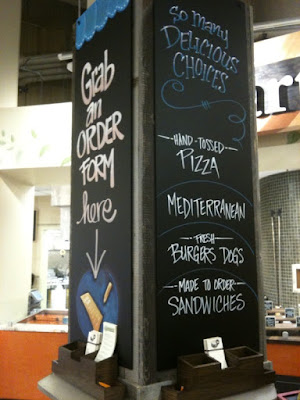 Grab
an
ORDER
FORM
here
So Many
Delicious
Choices
HAND-TOSSED
PIZZA
MEDITERRANEAN
FRESH
BURGERS DOGS
MADE TO ORDER
SANDWICHES